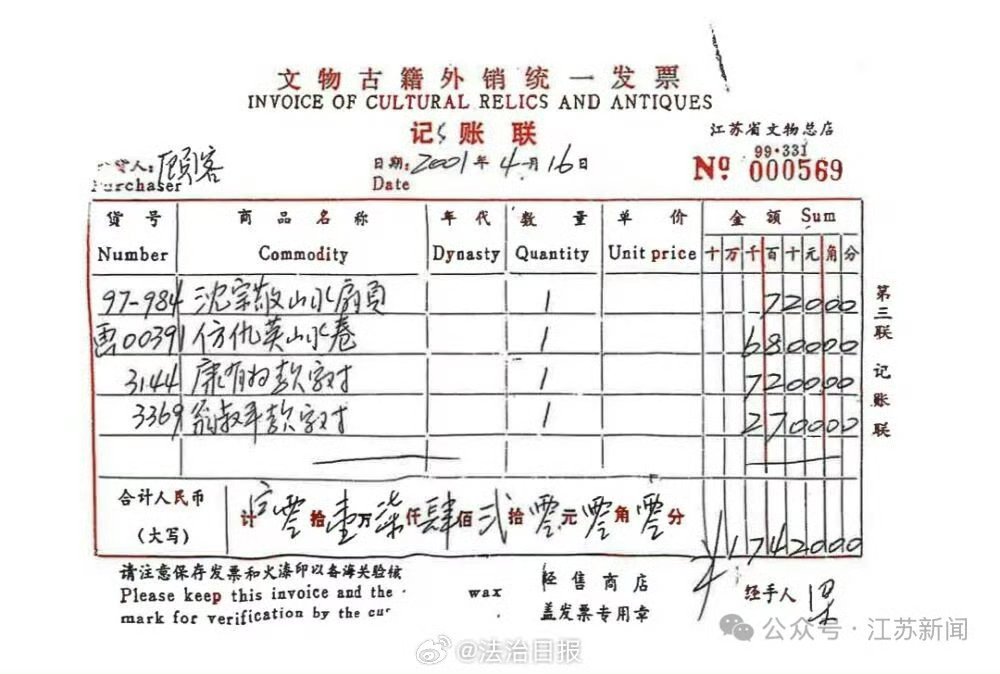 文物古籍外销统一发票
INVOICE OF CULTURAL RELICS AND ANTIQUES
记账联
江苏省文物总店
99·331
Nº 000569
货人：顾客
Purchaser
日期：2001年4月16日
Date
货号 商品名称 年代 数量 单价 金额 Sum
Number Commodity Dynasty Quantity Unit price 十万千百十元角分
97-984 沈宗敬山水扇页 1 72000
画00391 仿仇英山水卷 1 680000
3144 康有为款字对 1 720000
3369 翁叔平款字对 1 270000
合计人民币
（大写）
计 零拾壹万柒仟肆佰贰拾零元零角零分 ¥1742000
第三联 记账联
请注意保存发票和火漆印以备海关验核
Please keep this invoice and the wax
mark for verification by the
经售商店
盖发票专用章
经手人
@法治日报
公众号·江苏新闻